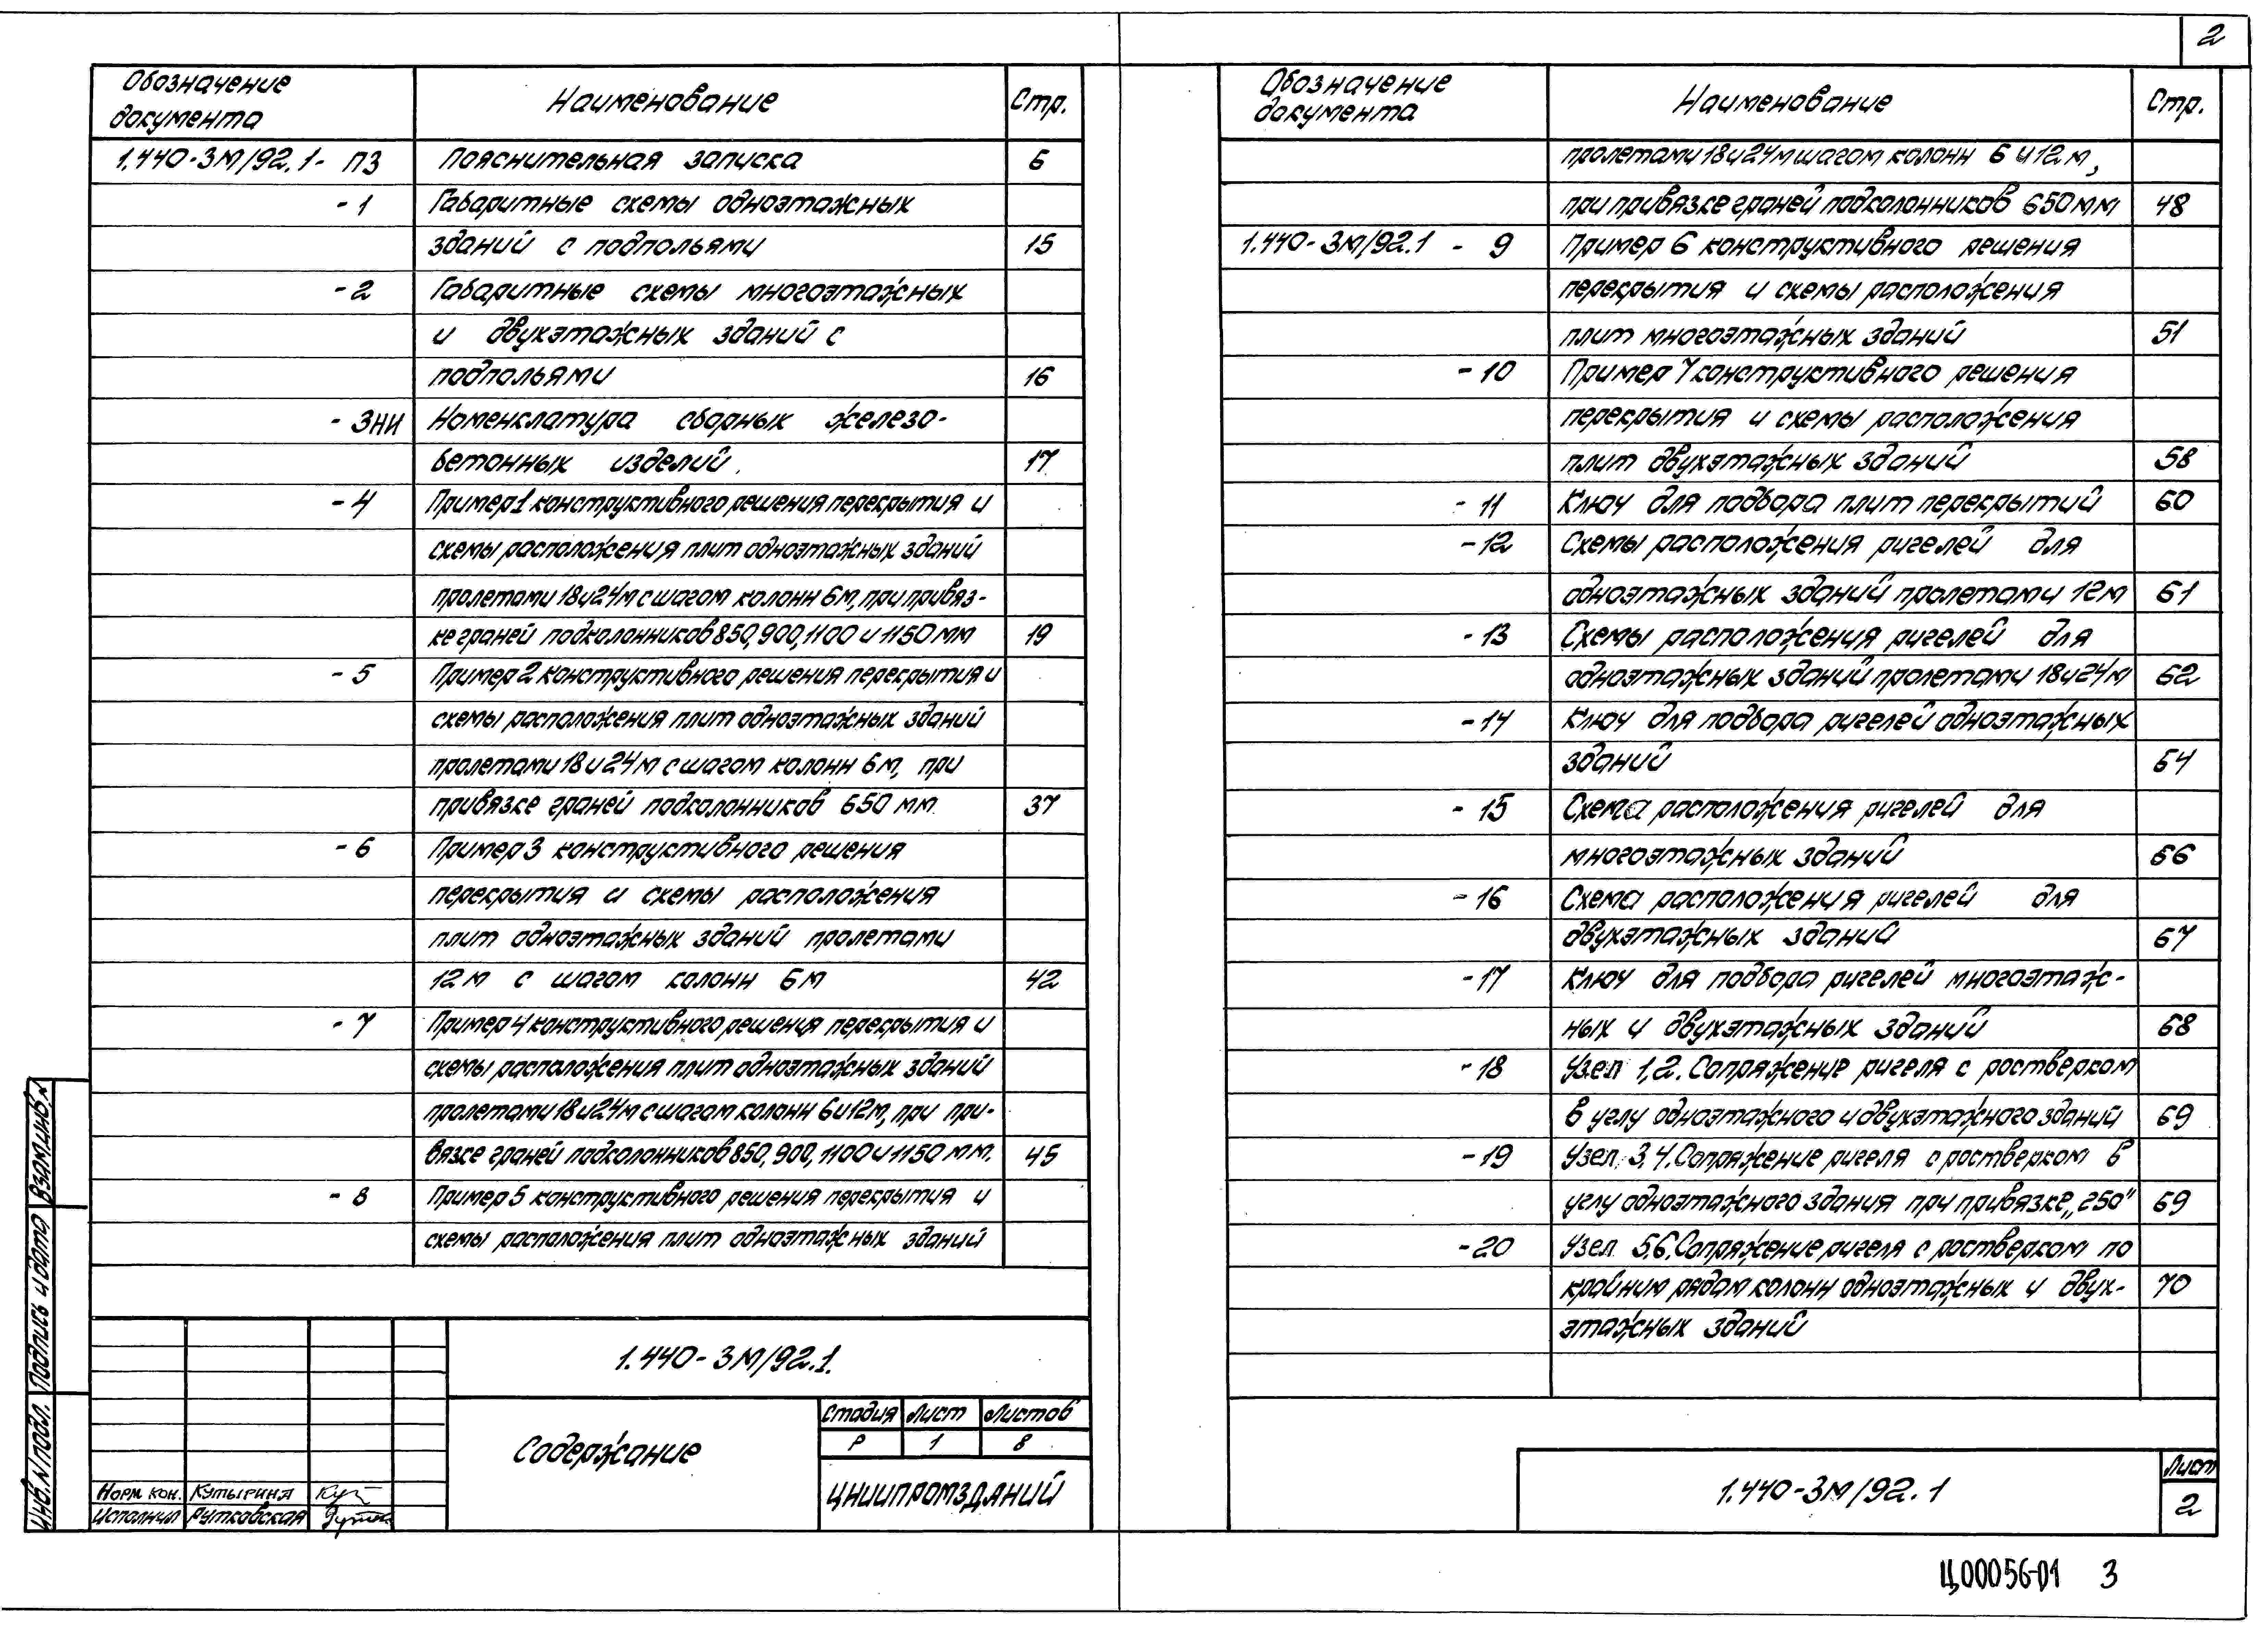 2
Обозначение документа Наименование Стр.
1.440-3М/92.1- ПЗ Пояснительная записка 6
- 1 Габаритные схемы одноэтажных
зданий с подпольями 15
- 2 Габаритные схемы многоэтажных
и двухэтажных зданий с
подпольями 16
- 3НИ Номенклатура сборных железо-
бетонных изделий. 17
- 4 Пример 1 конструктивного решения перекрытия и
схемы расположения плит одноэтажных зданий
пролетами 18 и 24 м с шагом колонн 6 м, при привяз-
ке граней подколонников 850, 900, 1100 и 1150 мм 19
- 5 Пример 2 конструктивного решения перекрытия и
схемы расположения плит одноэтажных зданий
пролетами 18 и 24 м с шагом колонн 6 м, при
привязке граней подколонников 650 мм 37
- 6 Пример 3 конструктивного решения
перекрытия и схемы расположения
плит одноэтажных зданий пролетами
12 м с шагом колонн 6 м 42
- 7 Пример 4 конструктивного решения перекрытия и
схемы расположения плит одноэтажных зданий
пролетами 18 и 24 м с шагом колонн 6 и 12 м, при при-
вязке граней подколонников 850, 900, 1100 и 1150 мм. 45
- 8 Пример 5 конструктивного решения перекрытия и
схемы расположения плит одноэтажных зданий
1.440-3М/92.1.
Содержание
Стадия Лист Листов
Р 1 8
ЦНИИПРОМЗДАНИЙ
Норм кон. Кутырина
Исполнил Рутковская
Инв.N подл. Подпись и дата Взам.инв.N
Обозначение документа Наименование Стр.
пролетами 18 и 24 м шагом колонн 6 и 12 м,
при привязке граней подколонников 650 мм 48
1.440-3М/92.1 - 9 Пример 6 конструктивного решения
перекрытия и схемы расположения
плит многоэтажных зданий 51
- 10 Пример 7 конструктивного решения
перекрытия и схемы расположения
плит двухэтажных зданий 58
- 11 Ключ для подбора плит перекрытий 60
- 12 Схемы расположения ригелей для
одноэтажных зданий пролетами 12 м 61
- 13 Схемы расположения ригелей для
одноэтажных зданий пролетами 18 и 24 м 62
- 14 Ключ для подбора ригелей одноэтажных
зданий 64
- 15 Схема расположения ригелей для
многоэтажных зданий 66
- 16 Схема расположения ригелей для
двухэтажных зданий 67
- 17 Ключ для подбора ригелей многоэтаж-
ных и двухэтажных зданий 68
- 18 Узел 1,2. Сопряжение ригеля с ростверком
в углу одноэтажного и двухэтажного зданий 69
- 19 Узел 3,4. Сопряжение ригеля с ростверком в
углу одноэтажного здания при привязке „250" 69
- 20 Узел 5,6. Сопряжение ригеля с ростверком по
крайним рядам колонн одноэтажных и двух- 70
этажных зданий
1.440-3М/92.1
Лист
2
Ц00056-01 3